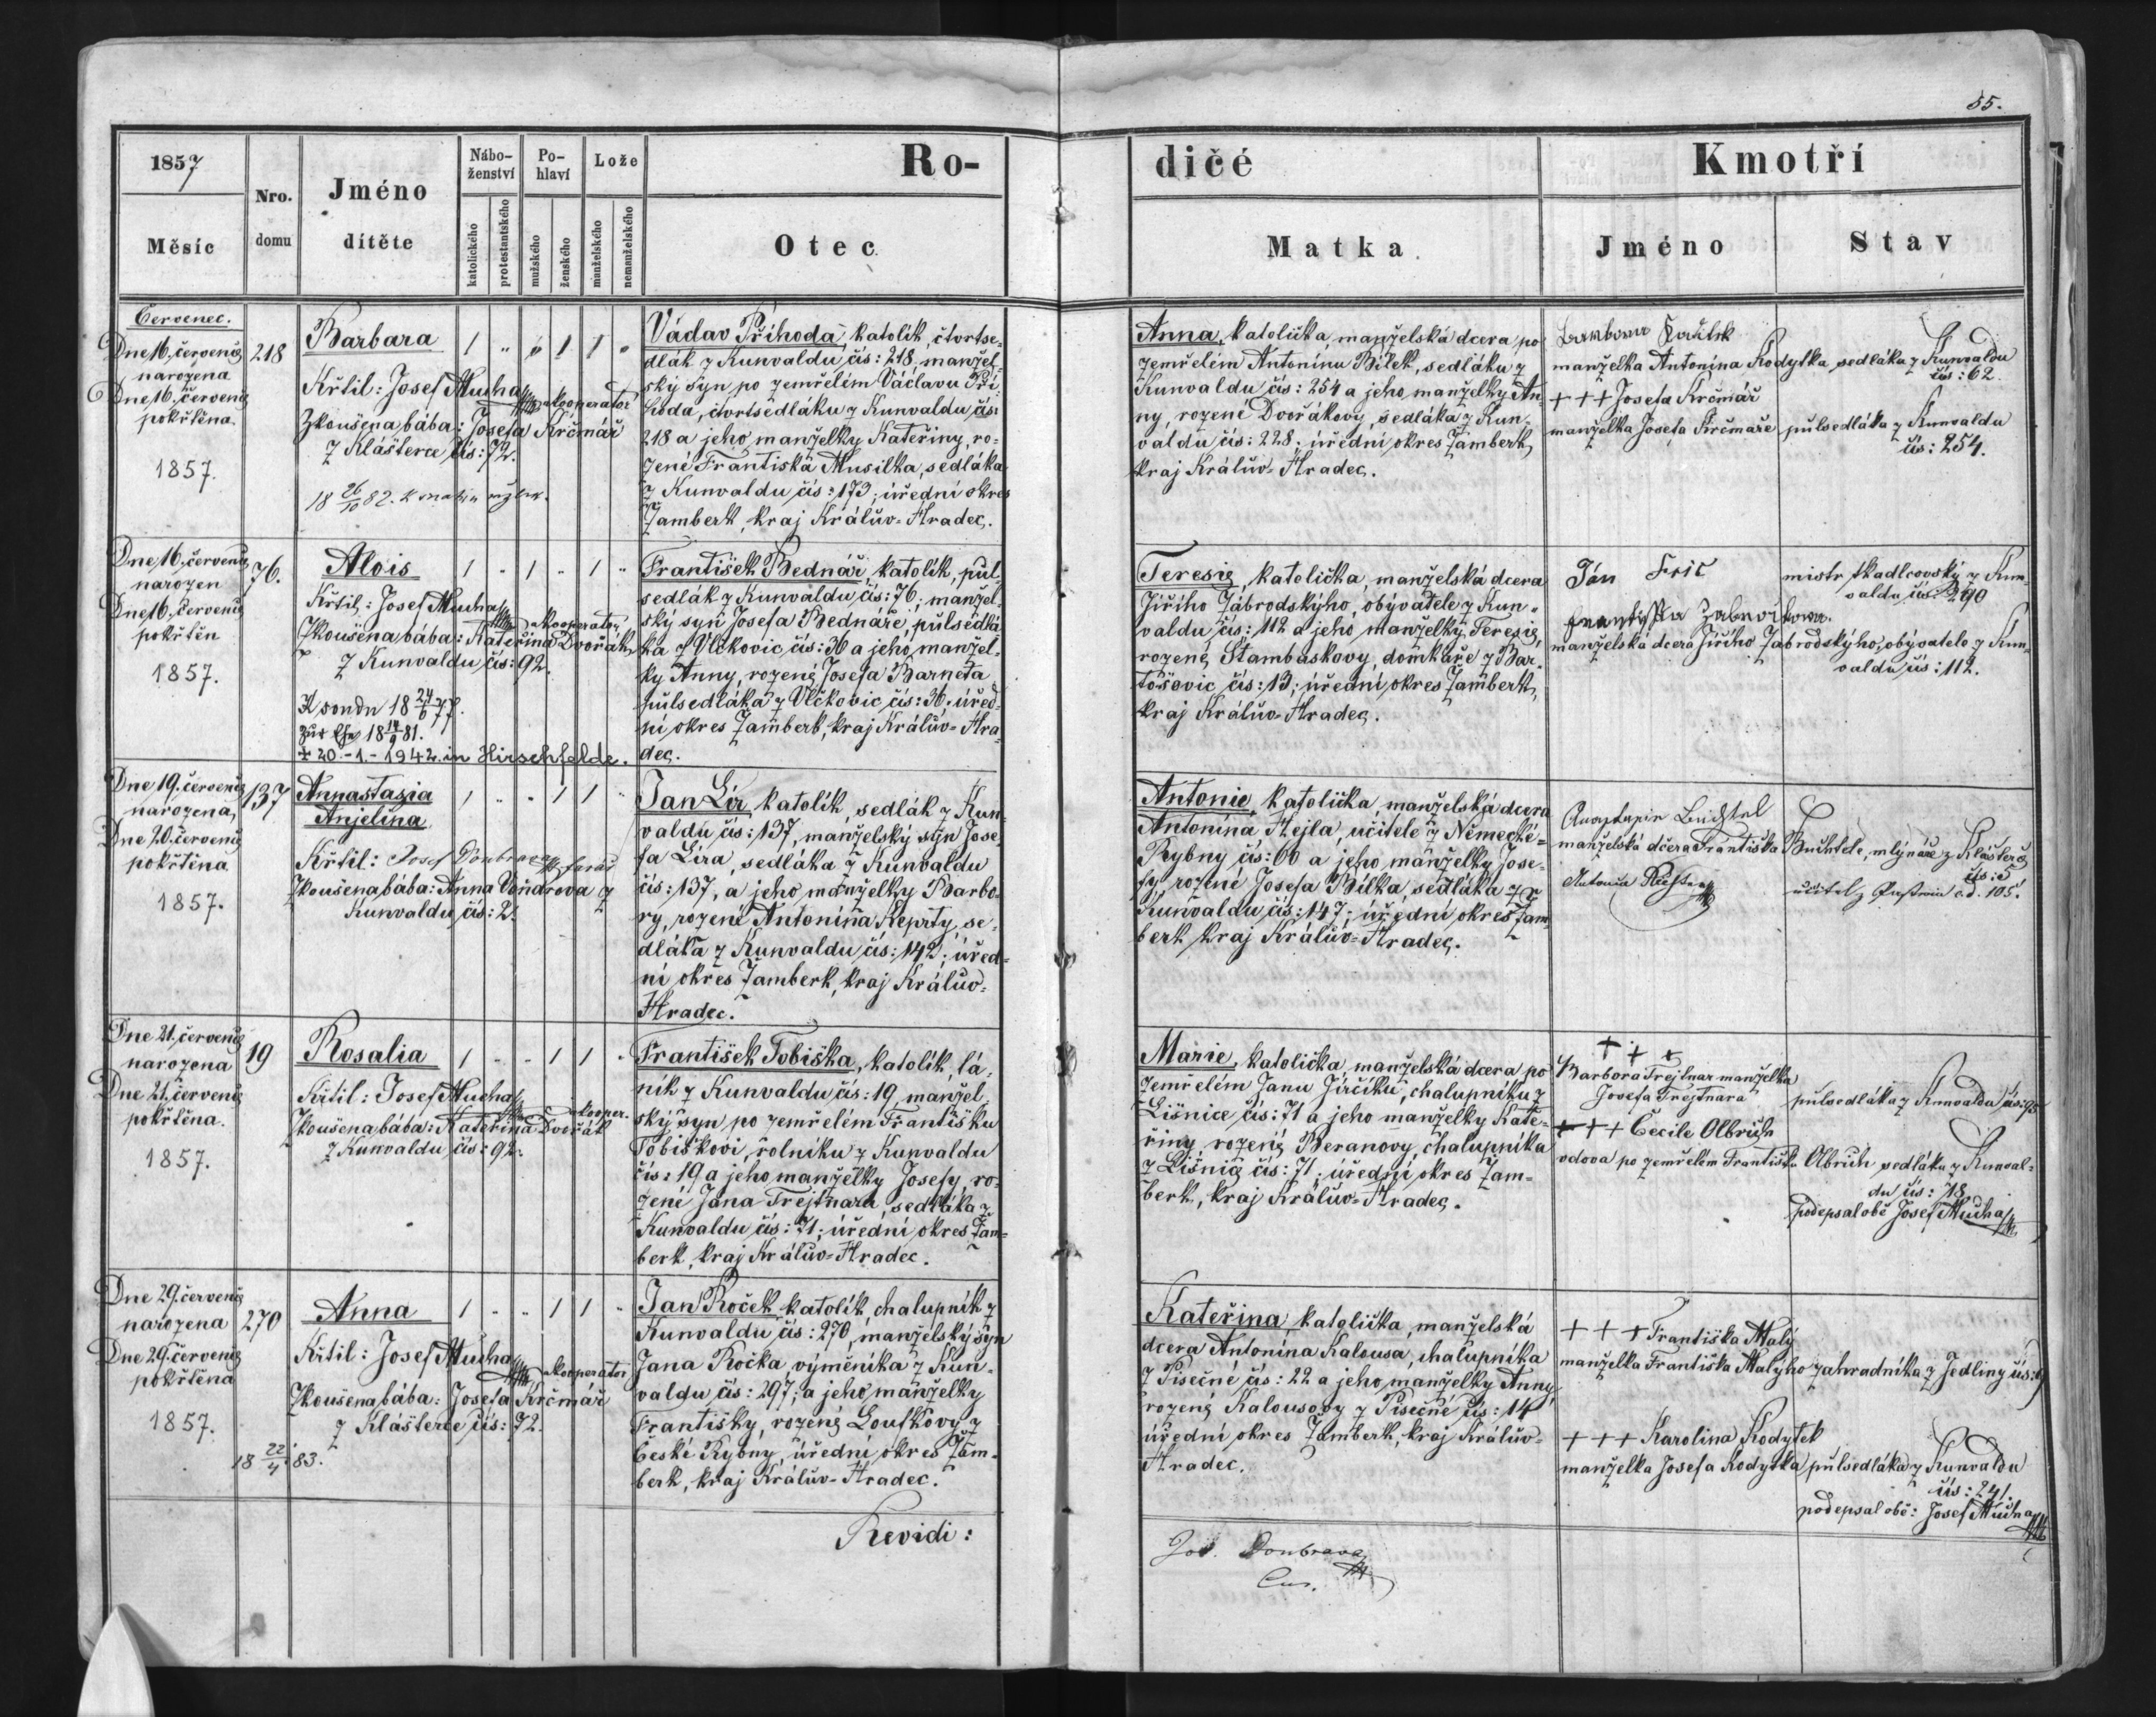 55.
1857
Měsíc
Nro.
domu
Jméno
dítěte
Nábo-
ženství
katolického
protestantského
Po-
hlaví
mužského
ženského
Lože
manželského
nemanželského
Ro-
Otec
dičé
Matka.
Kmotří
Jméno
Stav
Červenec.
Dne 16. července
narozena
Dne 16. července
pokřtěna
1857.
218
Barbara
Křtil: Josef Mucha
kooperator
Zkoušena bába: Josefa Krčmář
z Klášterce čís: 72.
18 26/10 82. k
Václav Příhoda, katolík, čtvrtse-
dlák z Kunvaldu čís: 218, manžel-
ský syn po zemřelém Václavu Při-
hoda, čtvrtsedláku z Kunvaldu čís:
218 a jeho manželky Kateřiny, ro-
zené Františka Musilka, sedláka
z Kunvaldu čís: 173; úřední okres
Žamberk, kraj Králův-Hradec.
Anna, katolička, manželská dcera po
zemřelém Antonínu Bílek, sedláku z
Kunvaldu čís: 254 a jeho manželky An-
ny, rozené Dvořákovy, sedláka z Kun-
valdu čís: 228; úřední okres Žamberk,
kraj Králův-Hradec.
manželka Antonína Kodytka, sedláka z Kunvaldu
čís: 62.
+++ Josefa Krčmář
manželka Josefa Krčmáře půlsedláka z Kunvaldu
čís: 254.
Dne 16. července
narozen
Dne 16. července
pokřtěn
1857.
76.
Alois
Křtil: Josef Mucha
kooperator
Zkoušena bába: Kateřina Dvořák
z Kunvaldu čís: 92.
18 24/6 77.
zur Ehe 18 14/9 81.
+ 20.-1.-1942. in Hirschfelde.
František Bednář, katolík, půl-
sedlák z Kunvaldu čís: 76; manžel-
ský syn Josefa Bednáře, půlsedlá-
ka z Vlčkovic čís: 36 a jeho manžel-
ky Anny, rozené Josefa Barneta
půlsedláka z Vlčkovic čís: 36. úřed-
ní okres Žamberk, kraj Králův-Hra-
dec.
Teresie, katolička, manželská dcera
Jiřího Zábrodskýho, obývatele z Kun-
valdu čís: 112 a jeho manželky Teresie,
rozené Stambaskovy, domkaře z Bar-
tošovic čís: 13; úřední okres Žamberk,
kraj Králův-Hradec.
Ján Fric
mistr tkadlcovský z Kun-
valdu čís: 290
manželská dcera Jiřího Zabrodskýho, obývatele z Kun-
valdu čís: 112.
Dne 19. července
narozena
Dne 20. července
pokřtěna
1857.
137
Annastazia
Anjelina
Křtil: Josef Doubrava farář
Zkoušena bába: Anna Voňdrova z
Kunvaldu čís: 2.
Jan Lír, katolík, sedlák z Kun-
valdu čís: 137, manželský syn Jose-
fa Líra, sedláka z Kunvaldu
čís: 137, a jeho manželky Barbo-
ry, rozené Antonína Keprty, se-
dláka z Kunvaldu čís: 142; úřed-
ní okres Žamberk, kraj Králův-
Hradec.
Antonie, katolička, manželská dcera
Antonína Hejla, učitele z Německé-
Rybny čís: 60 a jeho manželky Jose-
fy, rozené Josefa Bílka sedláka z
Kunvaldu čís: 147; úřední okres Žam-
berk kraj Králův-Hradec.
manželská dcera Františka Buchtele, mlynáře z Klášterce
čís: 5
učitel č.d. 105.
Dne 21. července
narozena
Dne 21. července
pokřtěna.
1857.
19
Rosalia
Křtil: Josef Mucha
kooper.
Zkoušena bába: Kateřina Dvořák
z Kunvaldu čís: 92.
František Tobiška, katolík, lá-
ník z Kunvaldu čís: 19, manžel-
ský syn po zemřelém Františku
Tobiškovi, rolníku z Kunvaldu
čís: 19 a jeho manželky Josefy, ro-
zené Jana Trejtnara, sedláka z
Kunvaldu čís: 71; úřední okres Žam-
berk, kraj Králův-Hradec.
Marie, katolička, manželská dcera po
zemřelém Janu Jirčíku, chalupníku z
Lišnice čís: 71 a jeho manželky Kate-
řiny rozené Beranovy, chalupníka
z Lišnice čís: 71; úřední okres Žam-
berk, kraj Králův-Hradec.
+++
Barbora Trejtnar manželka
Josefa Trejtnara půlsedláka z Kunvaldu čís: 95
+++ Cecile Olbrich
vdova po zemřelém Františku Olbrich sedláku z Kunval-
du čís: 18.
podepsal obě Josef Mucha
Dne 29. července
narozena
Dne 29. července
pokřtěna
1857.
270
Anna
Křtil: Josef Mucha
kooperator
Zkoušena bába: Josefa Krčmář
z Klášterce čís: 72.
18 22/4 83.
Jan Roček katolík, chalupník z
Kunvaldu čís: 270, manželský syn
Jana Ročka, výměníka z Kun-
valdu čís: 297; a jeho manželky
Františky, rozené Loutkovy z
České Rybny, úřední okres Žam-
berk, kraj Králův-Hradec.
Kateřina, katolička, manželská
dcera Antonína Kalousa, chalupníka
z Písečné čís: 22 a jeho manželky Anny,
rozené Kalousovy z Písečné čís: 14
úřední okres Žamberk, kraj Králův-
Hradec.
+++ Františka Malý
manželka Františka Malýho zahradníka z Jedliny čís: 9
+++ Karolina Kodytek
manželka Josefa Kodytka půlsedláka z Kunvaldu
čís: 241.
podepsal obě: Josef Mucha
Revidi:
Jos. Doubrava
Cur.